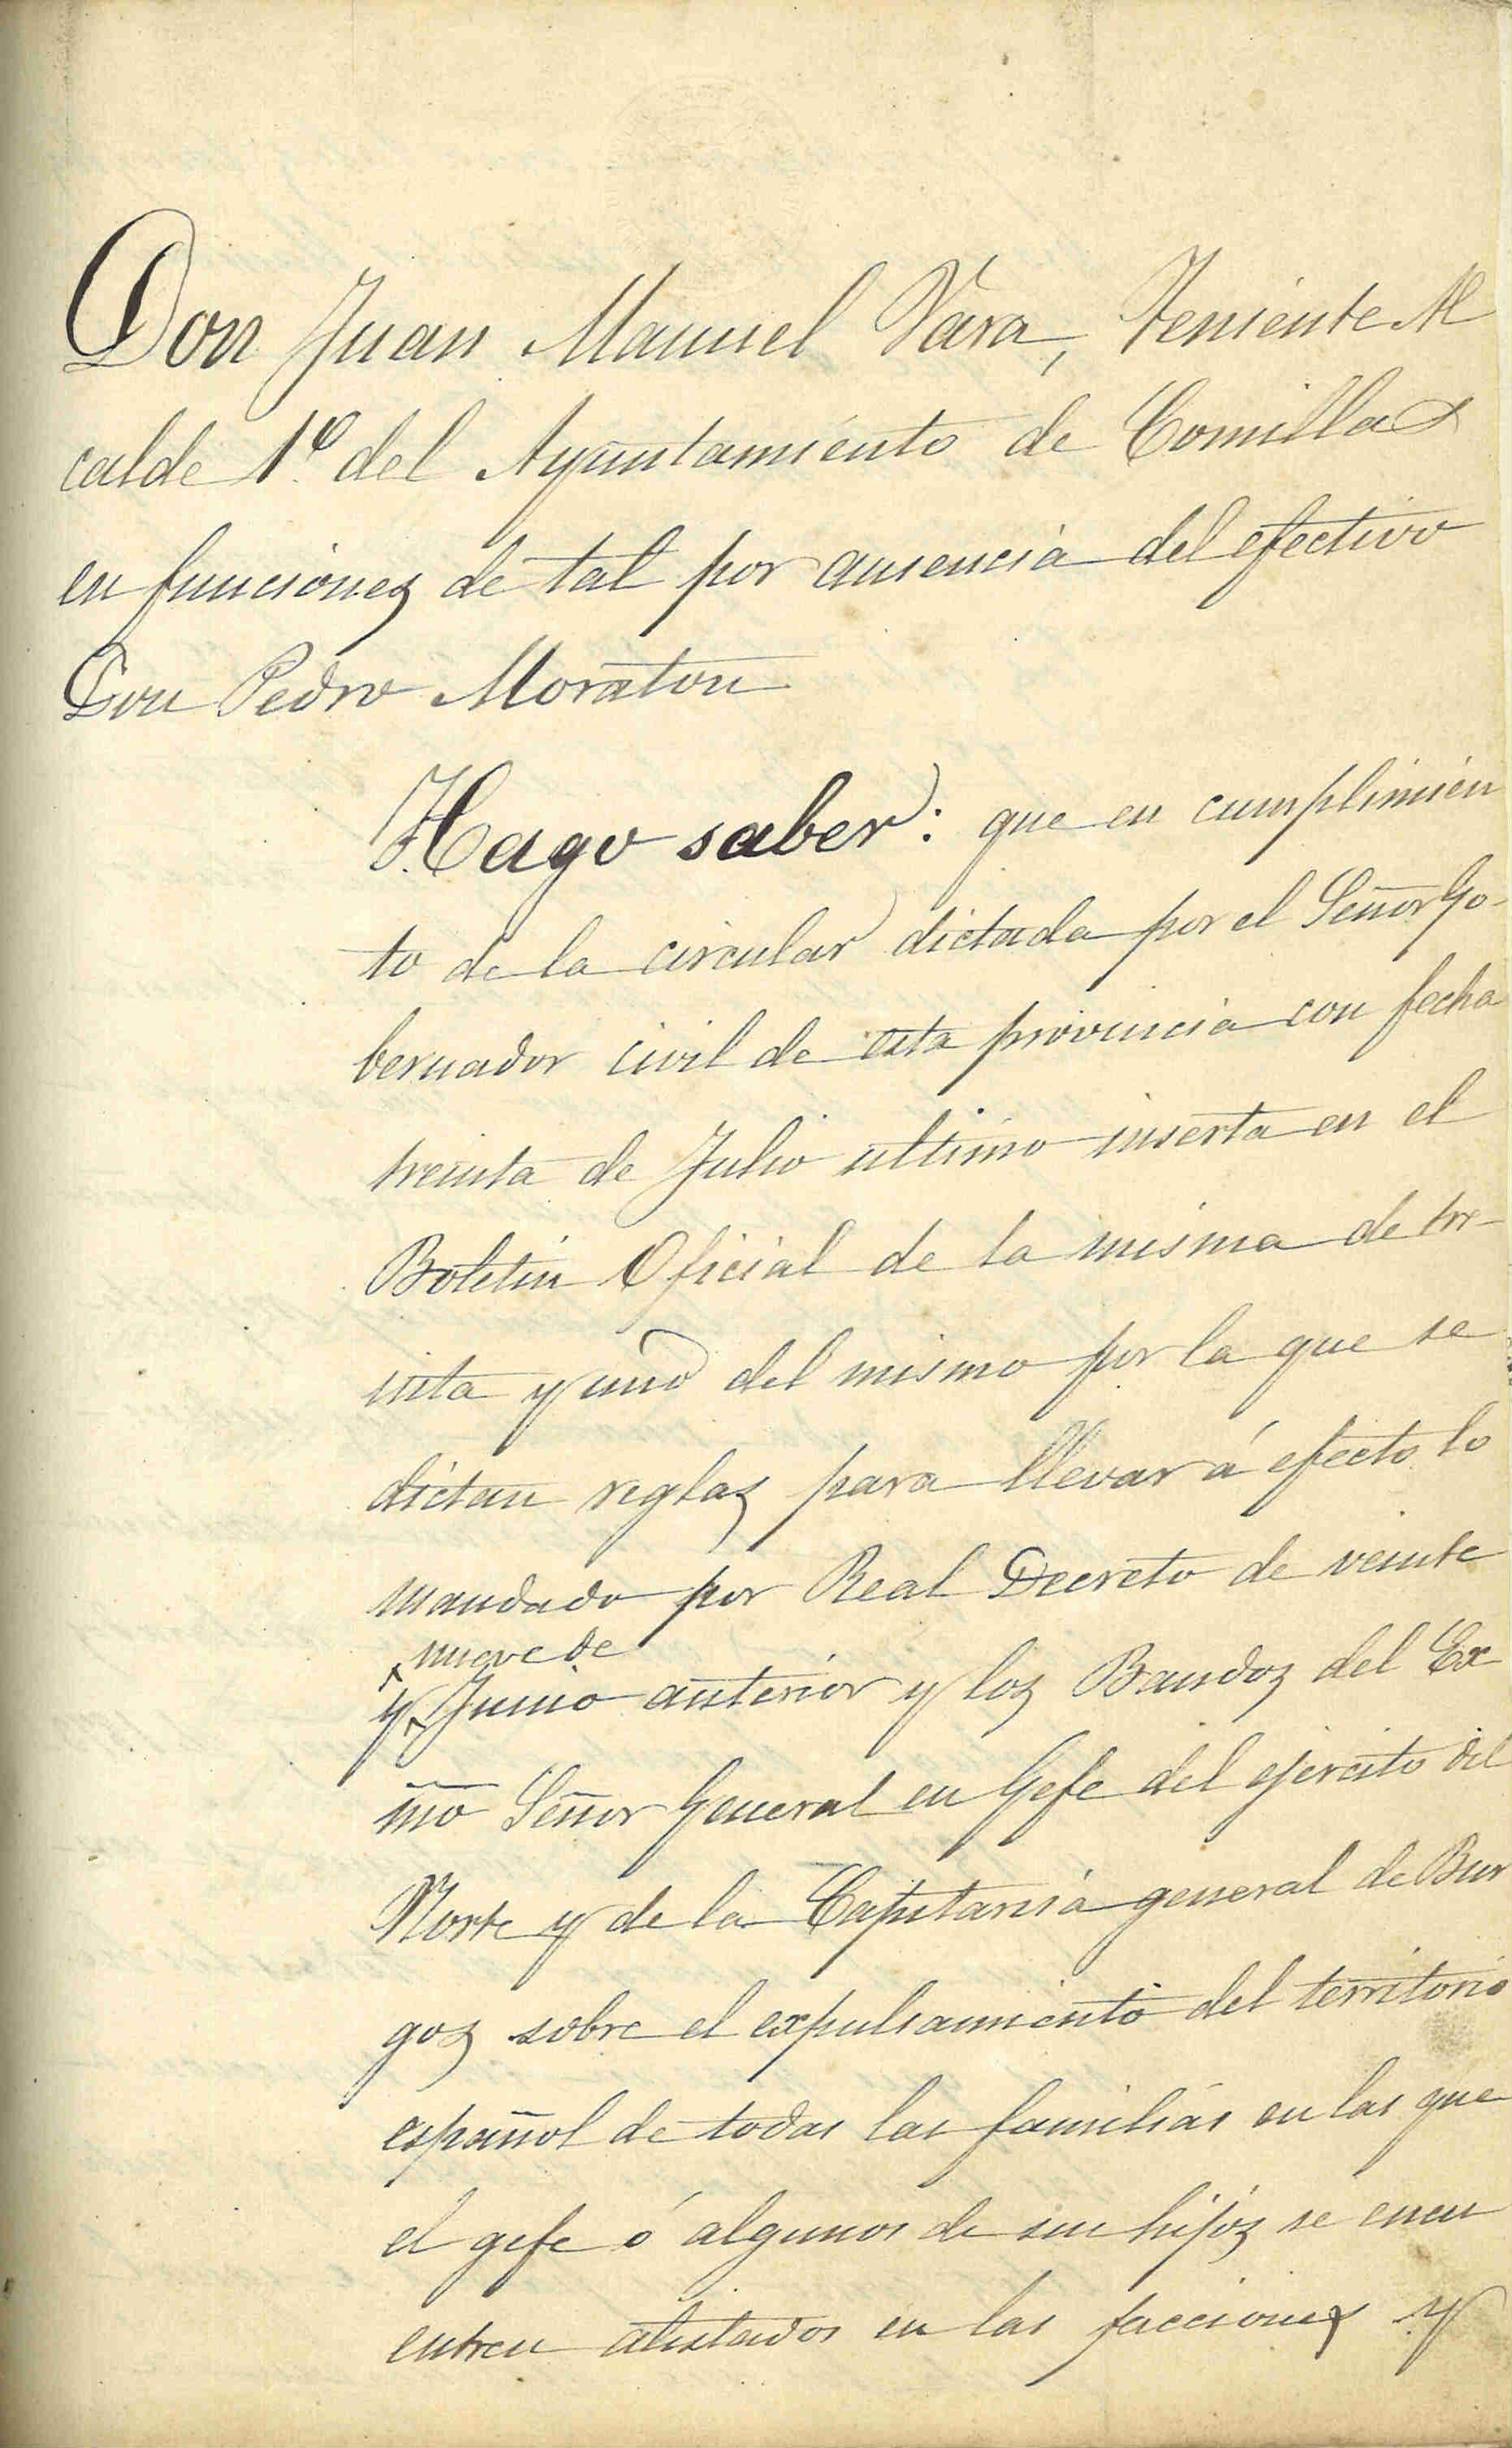 Don Juan Manuel Vara, Teniente Al
calde 1º del Ayuntamiento de Comillas
en funciones de tal por ausencia del efectivo
Don Pedro Moraton
Hago saber: que en cumplimien
to de la circular dictada por el Señor Go-
bernador civil de esta provincia con fecha
treinta de Julio ultimo inserta en el
Boletin Oficial de la misma de tre-
inta y uno del mismo por la que se
dictan reglas para llevar á efecto lo
mandado por Real Decreto de veinte
nueve de
y Junio anterior y los Bandos del Ex
mo Señor General en Gefe del ejercito del
Norte y de la Capitania general de Bur
gos sobre el expulsamiento del territorio
español de todas las familias en las que
el gefe ó algunos de sus hijos se encu
entren alistados en las facciones y